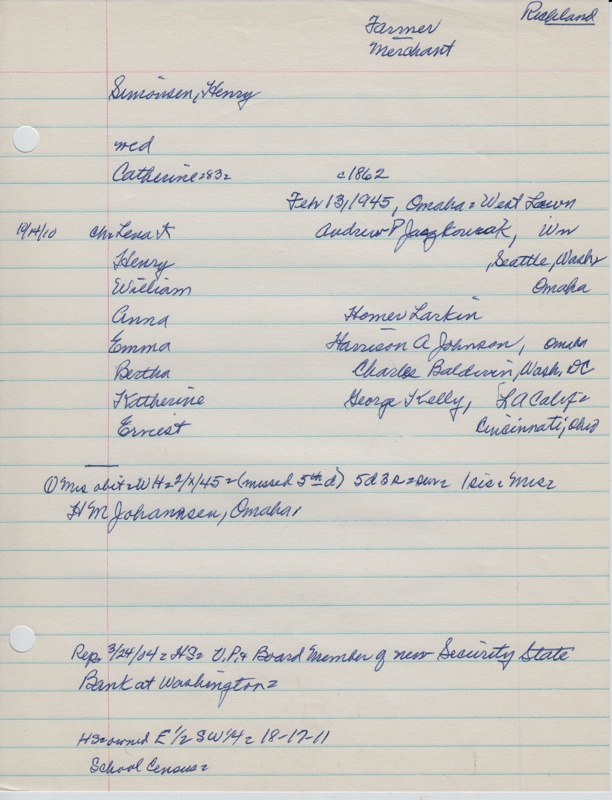 Richland
Farmer
Merchant
Simonsen, Henry
med
Catherine=83= c1862
Feb 13, 1945, Omaha = West Lawn
19/14/10 ch= Lena Andrew P Jaczkowiak, Wn
Henry , Seattle, Wash
William Omaha
Anna Homer Larkin
Emma Harrison A Johnson, Omaha
Bertha Charles Baldwin, Wash, DC
Katherine George Kelly, LA Calif=
Ernest Cincinnati, Ohio
① Mrs obit=WH=2/ /45=(missed 5th d) 5d 3s=surv= 1 sis= Mrs=
H M Johannsen, Omaha,
Rep= 3/24/04= HS= V.P. & Board Member of new Security State
Bank at Washington=
HS=owned E 1/2 SW 1/4= 18-17-11
School Census=